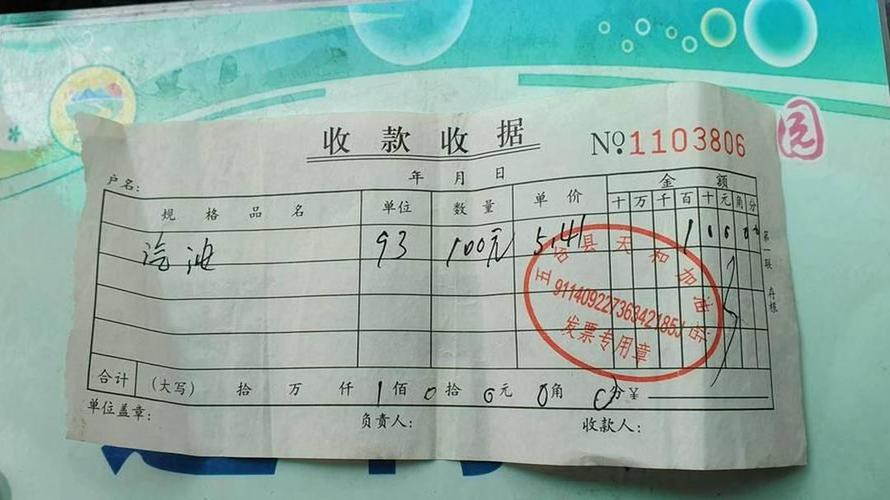 收款收据
№ 1103806
户名: 年 月 日
规格品名 单位 数量 单价 金额
十 万 千 百 十 元 角 分
汽油 93 100元 5.41 1 0 0 0 0
五台县天和加油站
91140922736342185J
发票专用章
合计 (大写) 拾 万 仟 1佰 0拾 0元 0角 0分 ¥
单位盖章: 负责人: 收款人:
第一联 存根
园